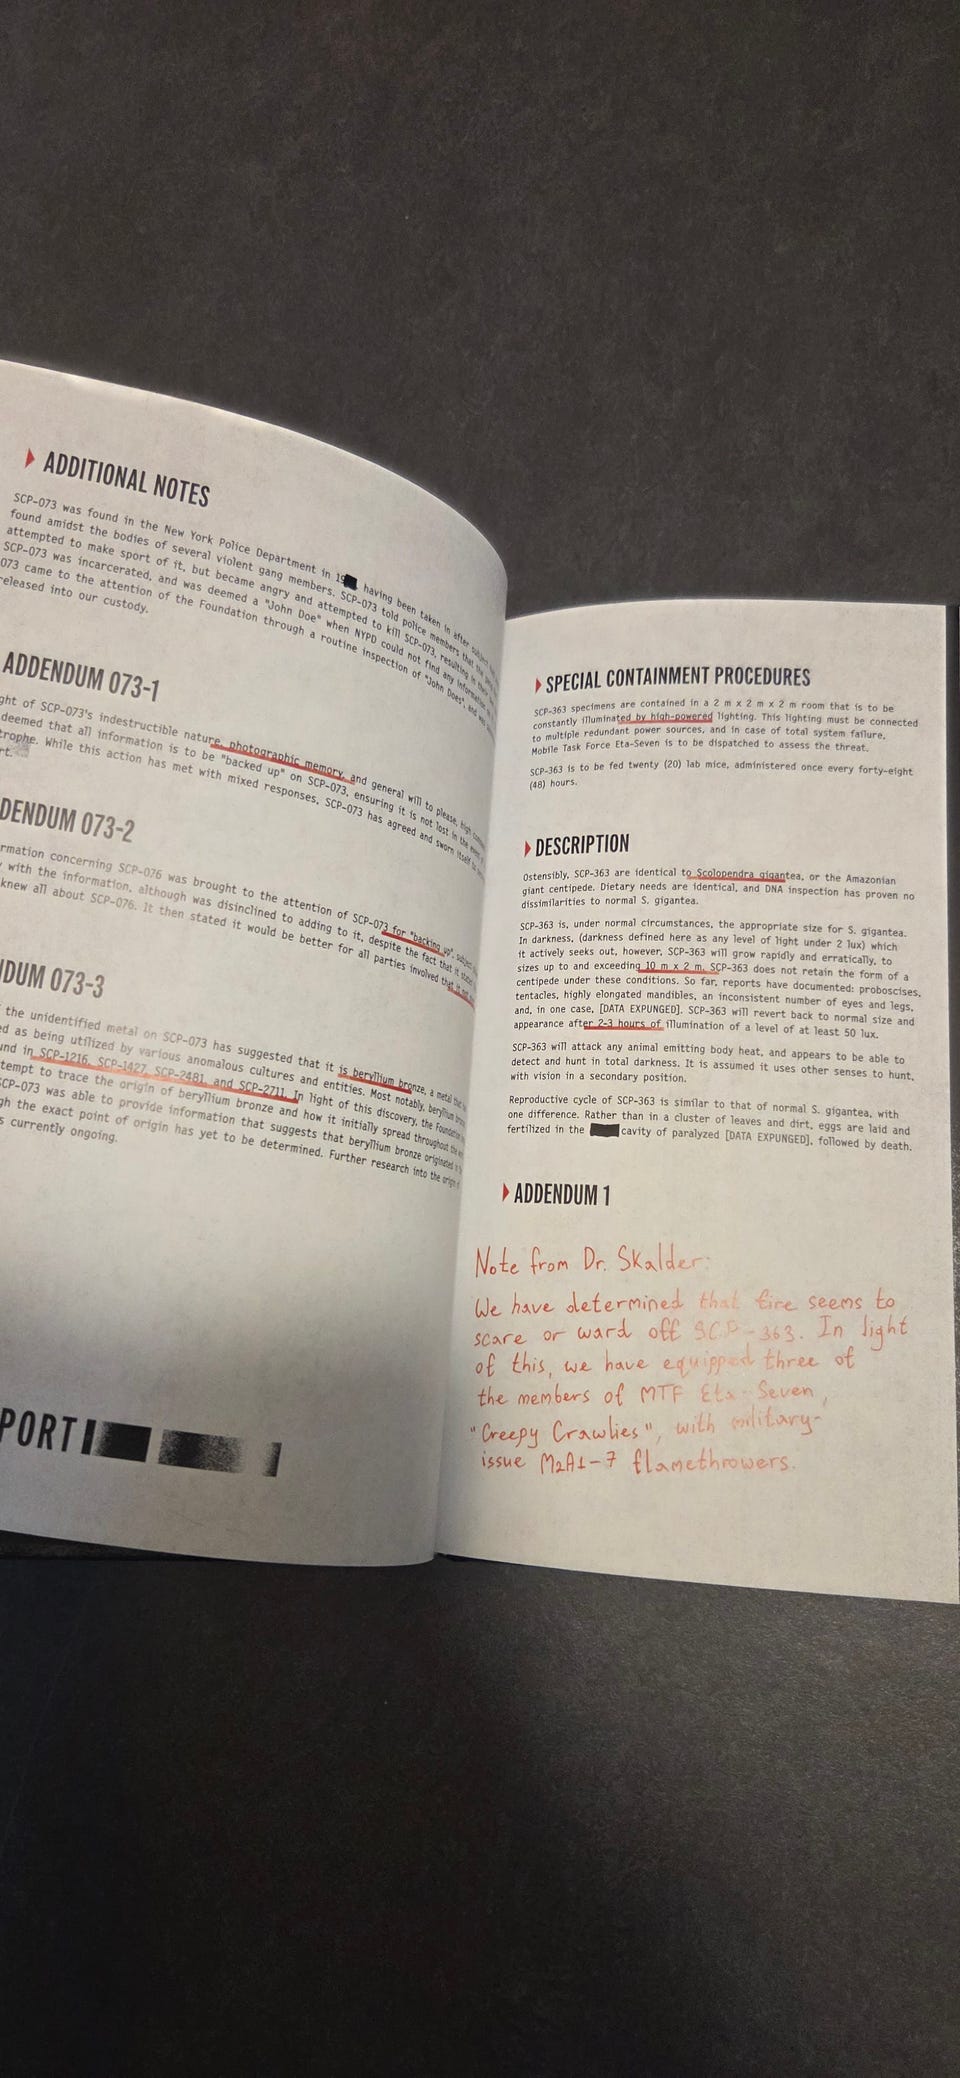 ADDITIONAL NOTES
SCP-073 was found in the New York Police Department in 19 having been taken in after subject
found amidst the bodies of several violent gang members. SCP-073 told police members that the
attempted to make sport of it, but became angry and attempted to kill SCP-073, resulting in their
SCP-073 was incarcerated, and was deemed a "John Doe" when NYPD could not find any information
073 came to the attention of the Foundation through a routine inspection of "John Does", and was
released into our custody.
ADDENDUM 073-1
ght of SCP-073's indestructible nature, photographic memory, and general will to please, high
deemed that all information is to be "backed up" on SCP-073, ensuring it is not lost in the event
trophe. While this action has met with mixed responses, SCP-073 has agreed and sworn itself to
rt.
DENDUM 073-2
rmation concerning SCP-076 was brought to the attention of SCP-073 for "backing up", subject
with the information, although was disinclined to adding to it, despite the fact that it
knew all about SCP-076. It then stated it would be better for all parties involved that it
DUM 073-3
the unidentified metal on SCP-073 has suggested that it is beryllium bronze, a metal that
ed as being utilized by various anomalous cultures and entities. Most notably, beryllium
und in SCP-1216, SCP-1427, SCP-2481, and SCP-2711. In light of this discovery, the Foundation
tempt to trace the origin of beryllium bronze and how it initially spread throughout the
SCP-073 was able to provide information that suggests that beryllium bronze originated in
gh the exact point of origin has yet to be determined. Further research into the origin
s currently ongoing.
PORT
SPECIAL CONTAINMENT PROCEDURES
SCP-363 specimens are contained in a 2 m x 2 m x 2 m room that is to be
constantly illuminated by high-powered lighting. This lighting must be connected
to multiple redundant power sources, and in case of total system failure,
Mobile Task Force Eta-Seven is to be dispatched to assess the threat.
SCP-363 is to be fed twenty (20) lab mice, administered once every forty-eight
(48) hours.
DESCRIPTION
Ostensibly, SCP-363 are identical to Scolopendra gigantea, or the Amazonian
giant centipede. Dietary needs are identical, and DNA inspection has proven no
dissimilarities to normal S. gigantea.
SCP-363 is, under normal circumstances, the appropriate size for S. gigantea.
In darkness, (darkness defined here as any level of light under 2 lux) which
it actively seeks out, however, SCP-363 will grow rapidly and erratically, to
sizes up to and exceeding 10 m x 2 m. SCP-363 does not retain the form of a
centipede under these conditions. So far, reports have documented: proboscises,
tentacles, highly elongated mandibles, an inconsistent number of eyes and legs,
and, in one case, [DATA EXPUNGED]. SCP-363 will revert back to normal size and
appearance after 2-3 hours of illumination of a level of at least 50 lux.
SCP-363 will attack any animal emitting body heat, and appears to be able to
detect and hunt in total darkness. It is assumed it uses other senses to hunt,
with vision in a secondary position.
Reproductive cycle of SCP-363 is similar to that of normal S. gigantea, with
one difference. Rather than in a cluster of leaves and dirt, eggs are laid and
fertilized in the cavity of paralyzed [DATA EXPUNGED], followed by death.
ADDENDUM 1
Note from Dr. Skalder:
We have determined that fire seems to
scare or ward off SCP-363. In light
of this, we have equipped three of
the members of MTF Eta-Seven,
"Creepy Crawlies", with military-
issue M2A1-7 flamethrowers.